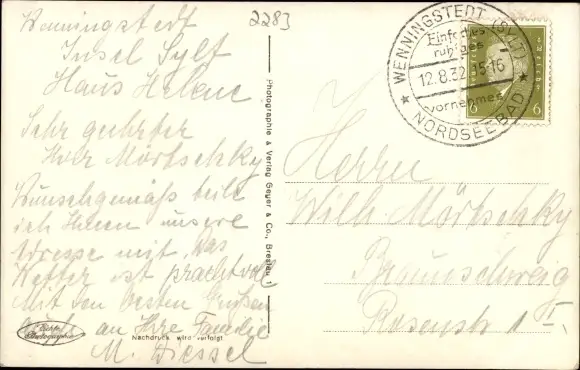 2283
Wenningstedt
Insel Sylt
Haus Helene
Sehr geehrter
Herr Mörtschky
Wunschgemäß teile
ich Ihnen unsere
Adresse mit, das
Wetter ist prachtvoll
Mit den besten Grüßen
auch an Ihre Familie
M. Diessel
Echte
Photographie
Nachdruck wird verfolgt
Photographie & Verlag Geyer & Co., Breslau 1
WENNINGSTEDT (SYLT)
Einfaches
ruhiges
12.8.32.15-16
vornehmes
NORDSEEBAD
6 6
Herrn
Wilh. Mörtschky
Braunschweig
Rosenstr. 1 II